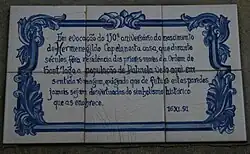 Em evocação do 150º aniversário do nascimento
de Hermenegildo Capelo nesta casa, que durante
séculos, fora residência dos priores-mores da Ordem de
Sant'Iago a população de Palmela veio aqui em
sentida romagem, augurando que de futuro estas paredes
jamais sejam desvirtuadas do simbolismo histórico
que as enobrece.
16.XI.91